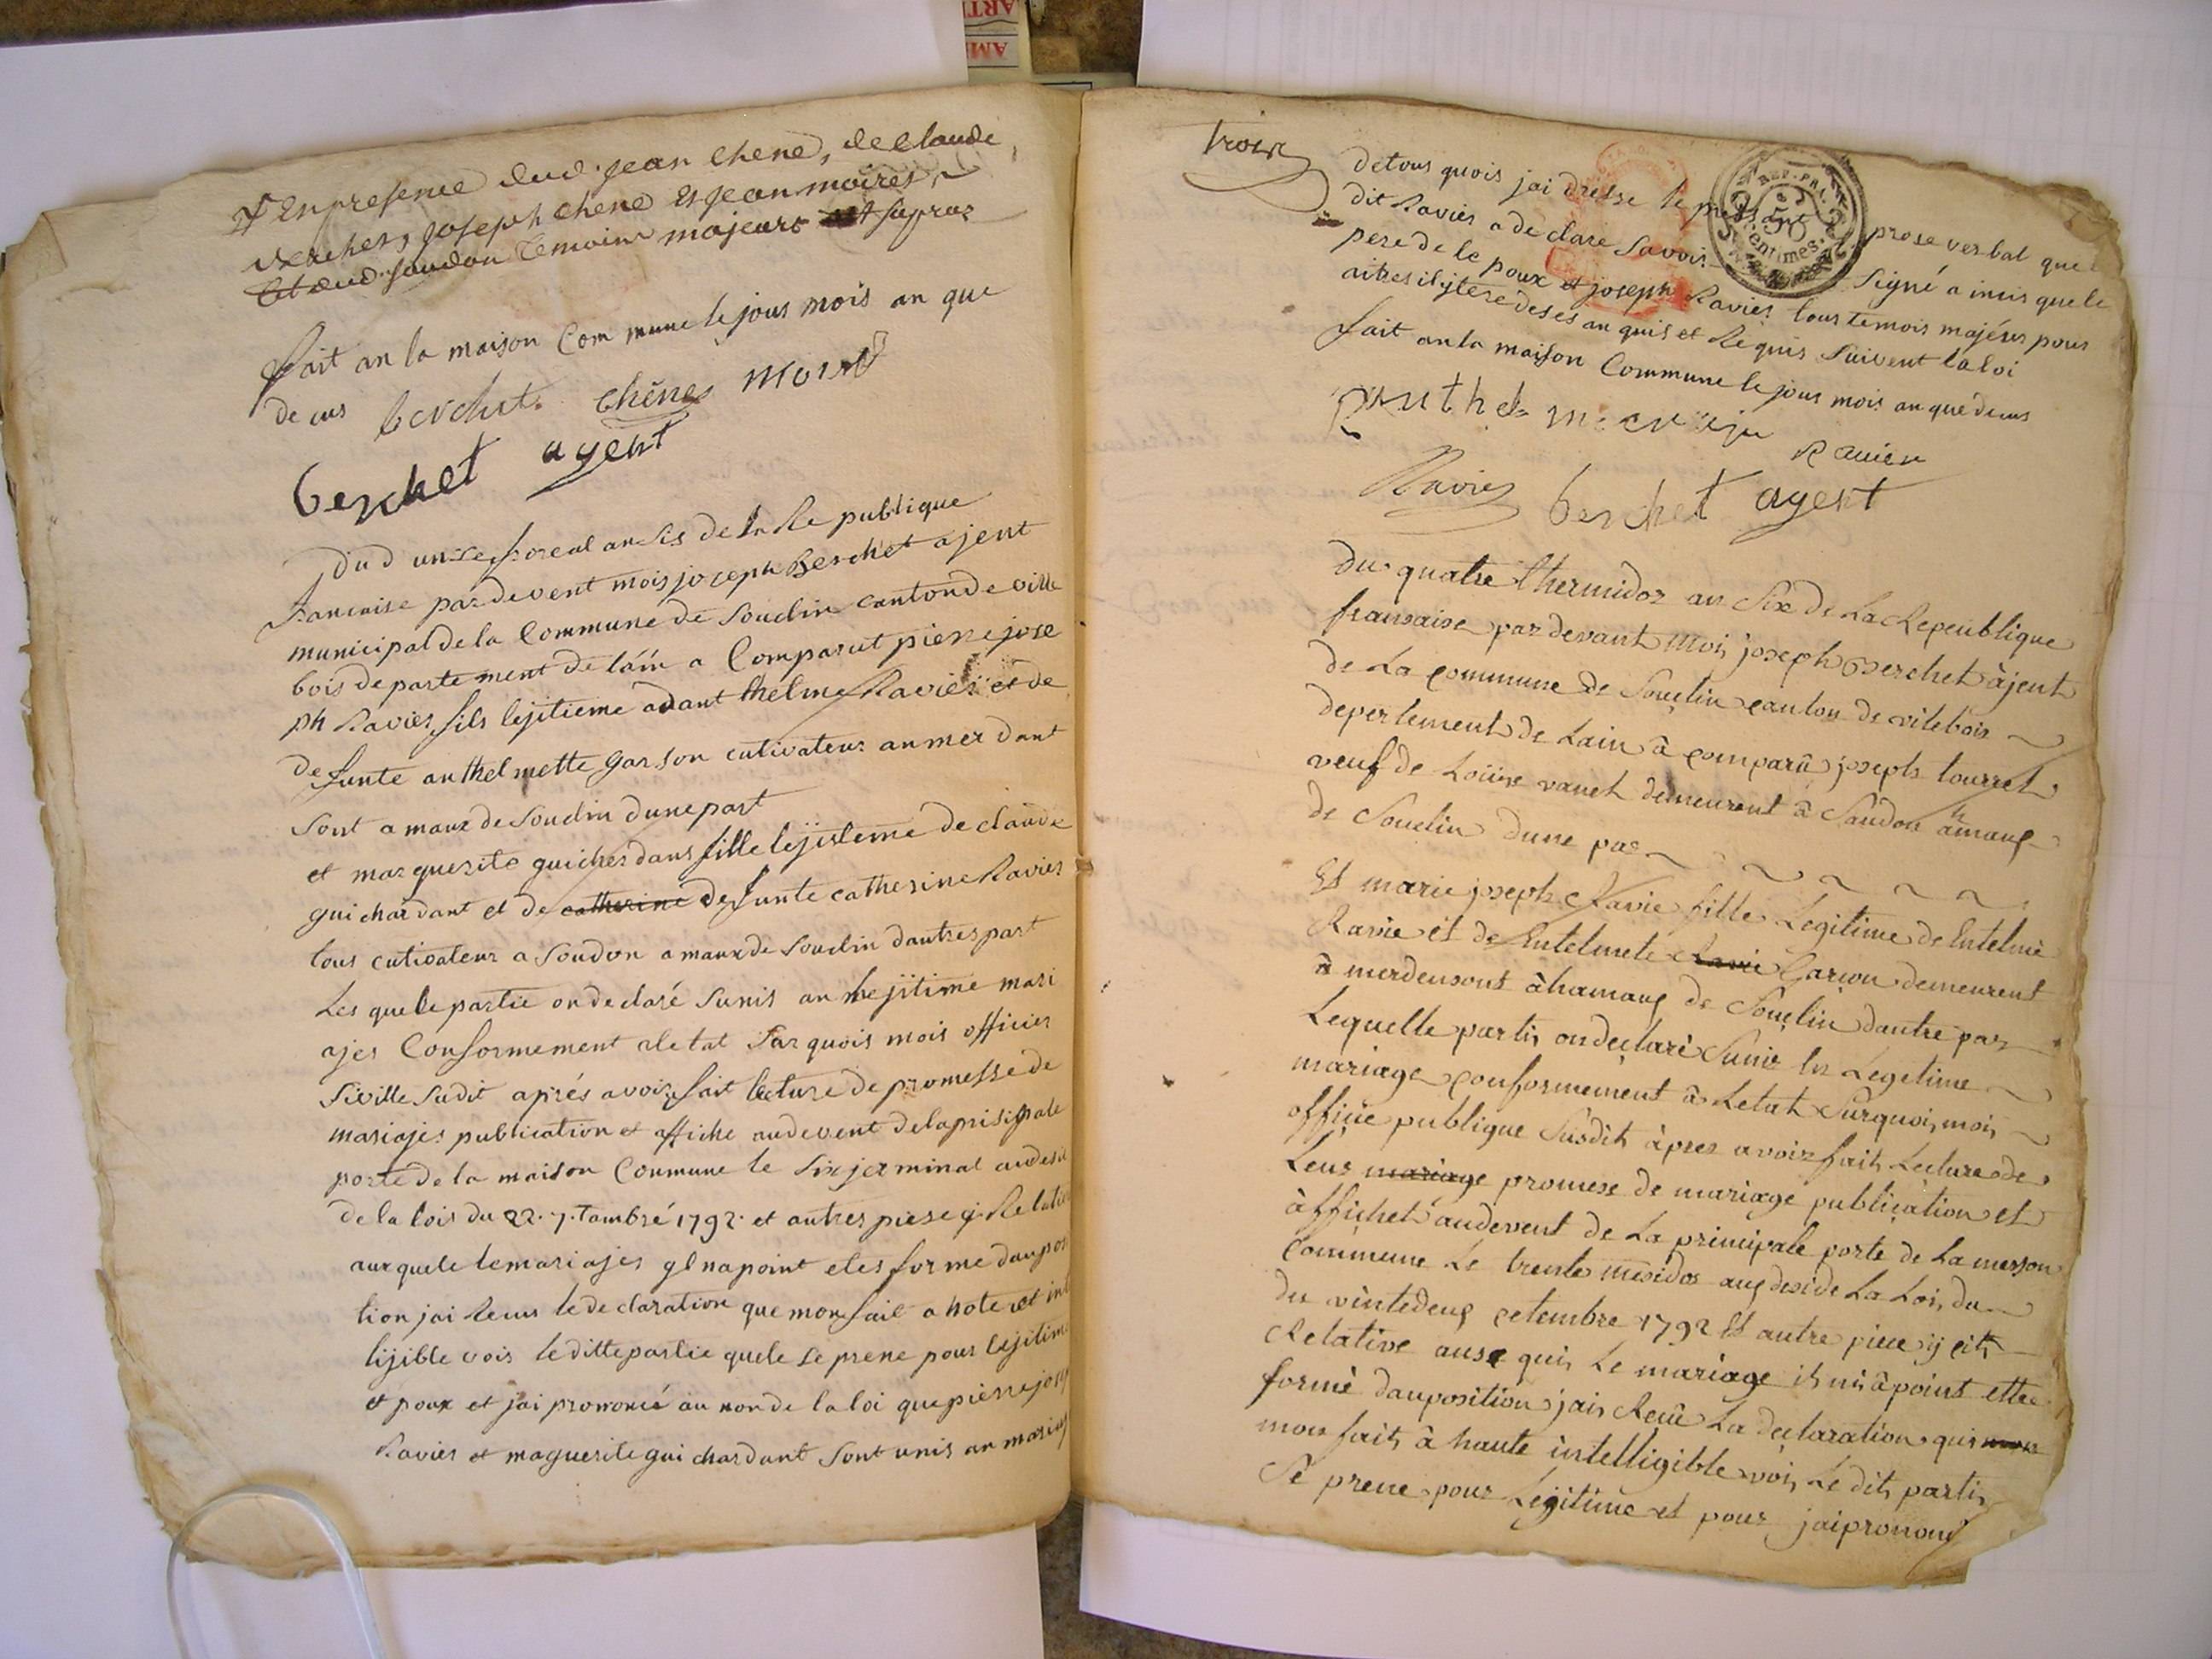 En presence dud. jean chene, de Claude
vercher, joseph chene et jean moires
et dud. soudon temoins majeurs et
fait an la maison Commune le jour mois an que
de cus berchet chêne
berchet agent
Dud unse floreal an sis de la Re publique
francaise par devent mois joceph Berchet ajent
municipal de la Commune de Souclin canton de ville
bois departement de láin a Comparut pierre jose
ph Ravier fils lejitieme adant thelme Ravier et de
defunte anthelmette garson cutivateur an mer dant
sont a maux de Souclin dune part
et marguerite guichardans fille lejisteme de claude
guichardant et de catherine defunte catherine Ravier
tous cutivateur a Soudon a maux de Souclin dautres part
Les quele partie on declaré sunis an lejitime mari
ajes Conformement a letat Sur quois mois officier
Siville Sudit aprés avoir fait lecture de promesse de
mariajes publication et affiche audevent de la prisipale
porte de la maison Commune le Six jerminal au desir
de la lois du 22. 7. tambre 1792. et autres piese
aux quele le mariajes yl na point eles forme dau po
tion jai Recus le declaration que mon fait a hote et int
lijible vois le ditte partie quele se prene pour lejitime
et poux et jai prononcé au non de la loi que pierre jose
Ravier et maguerite guichardant Sont unis an mariag
trois
de tous quois jai dresse le present prose verbal que l
REP. FRA.
50
centimes
dit Ravier a declare Savoir Signé a insis que le
pere de le poux et joseph Ravier tous temois majéurs pour
aitres ilytere deses an quis et Requis suivent la loi
fait an la maison Commune le jour mois an que decus
Ravier
Ravier berchet agent
du quatre thermidor an Six de La Republique
fransaise par devant moi joseph Berchet àjent
de La commune de Souclin canton de vilebois
depertement de Lain à comparû joseph tourret
veuf de Loüise vanet demeurent à Soudon âmaux
de Souclin dune par
Et marie joseph Ravie fille Legitime de Entelme
Ravie et de Entelmete Ravie Garson demeurent
à merdensont à hamaux de Souclin dautre par
Lequelle partis on declaré Sunir In Legetime
mariage conformement à Letat Surquois mois
officie publique Susdit àpres avoir fait Lecture de
Leur mariage promese de mariage publication et
àffichet audevent de La principale porte de La meson
Commune Le trente mesidor aux desi de La Loi du
du vintedeux cetembre 1792 Et autre piece
Relative ausx quis Le mariage il nià point ettee
formé dauposition jais Recû La declaration quis mon
mon fait à haute intelligible vois Le dits partis
Se prene pour Legitime et pour jai prononce